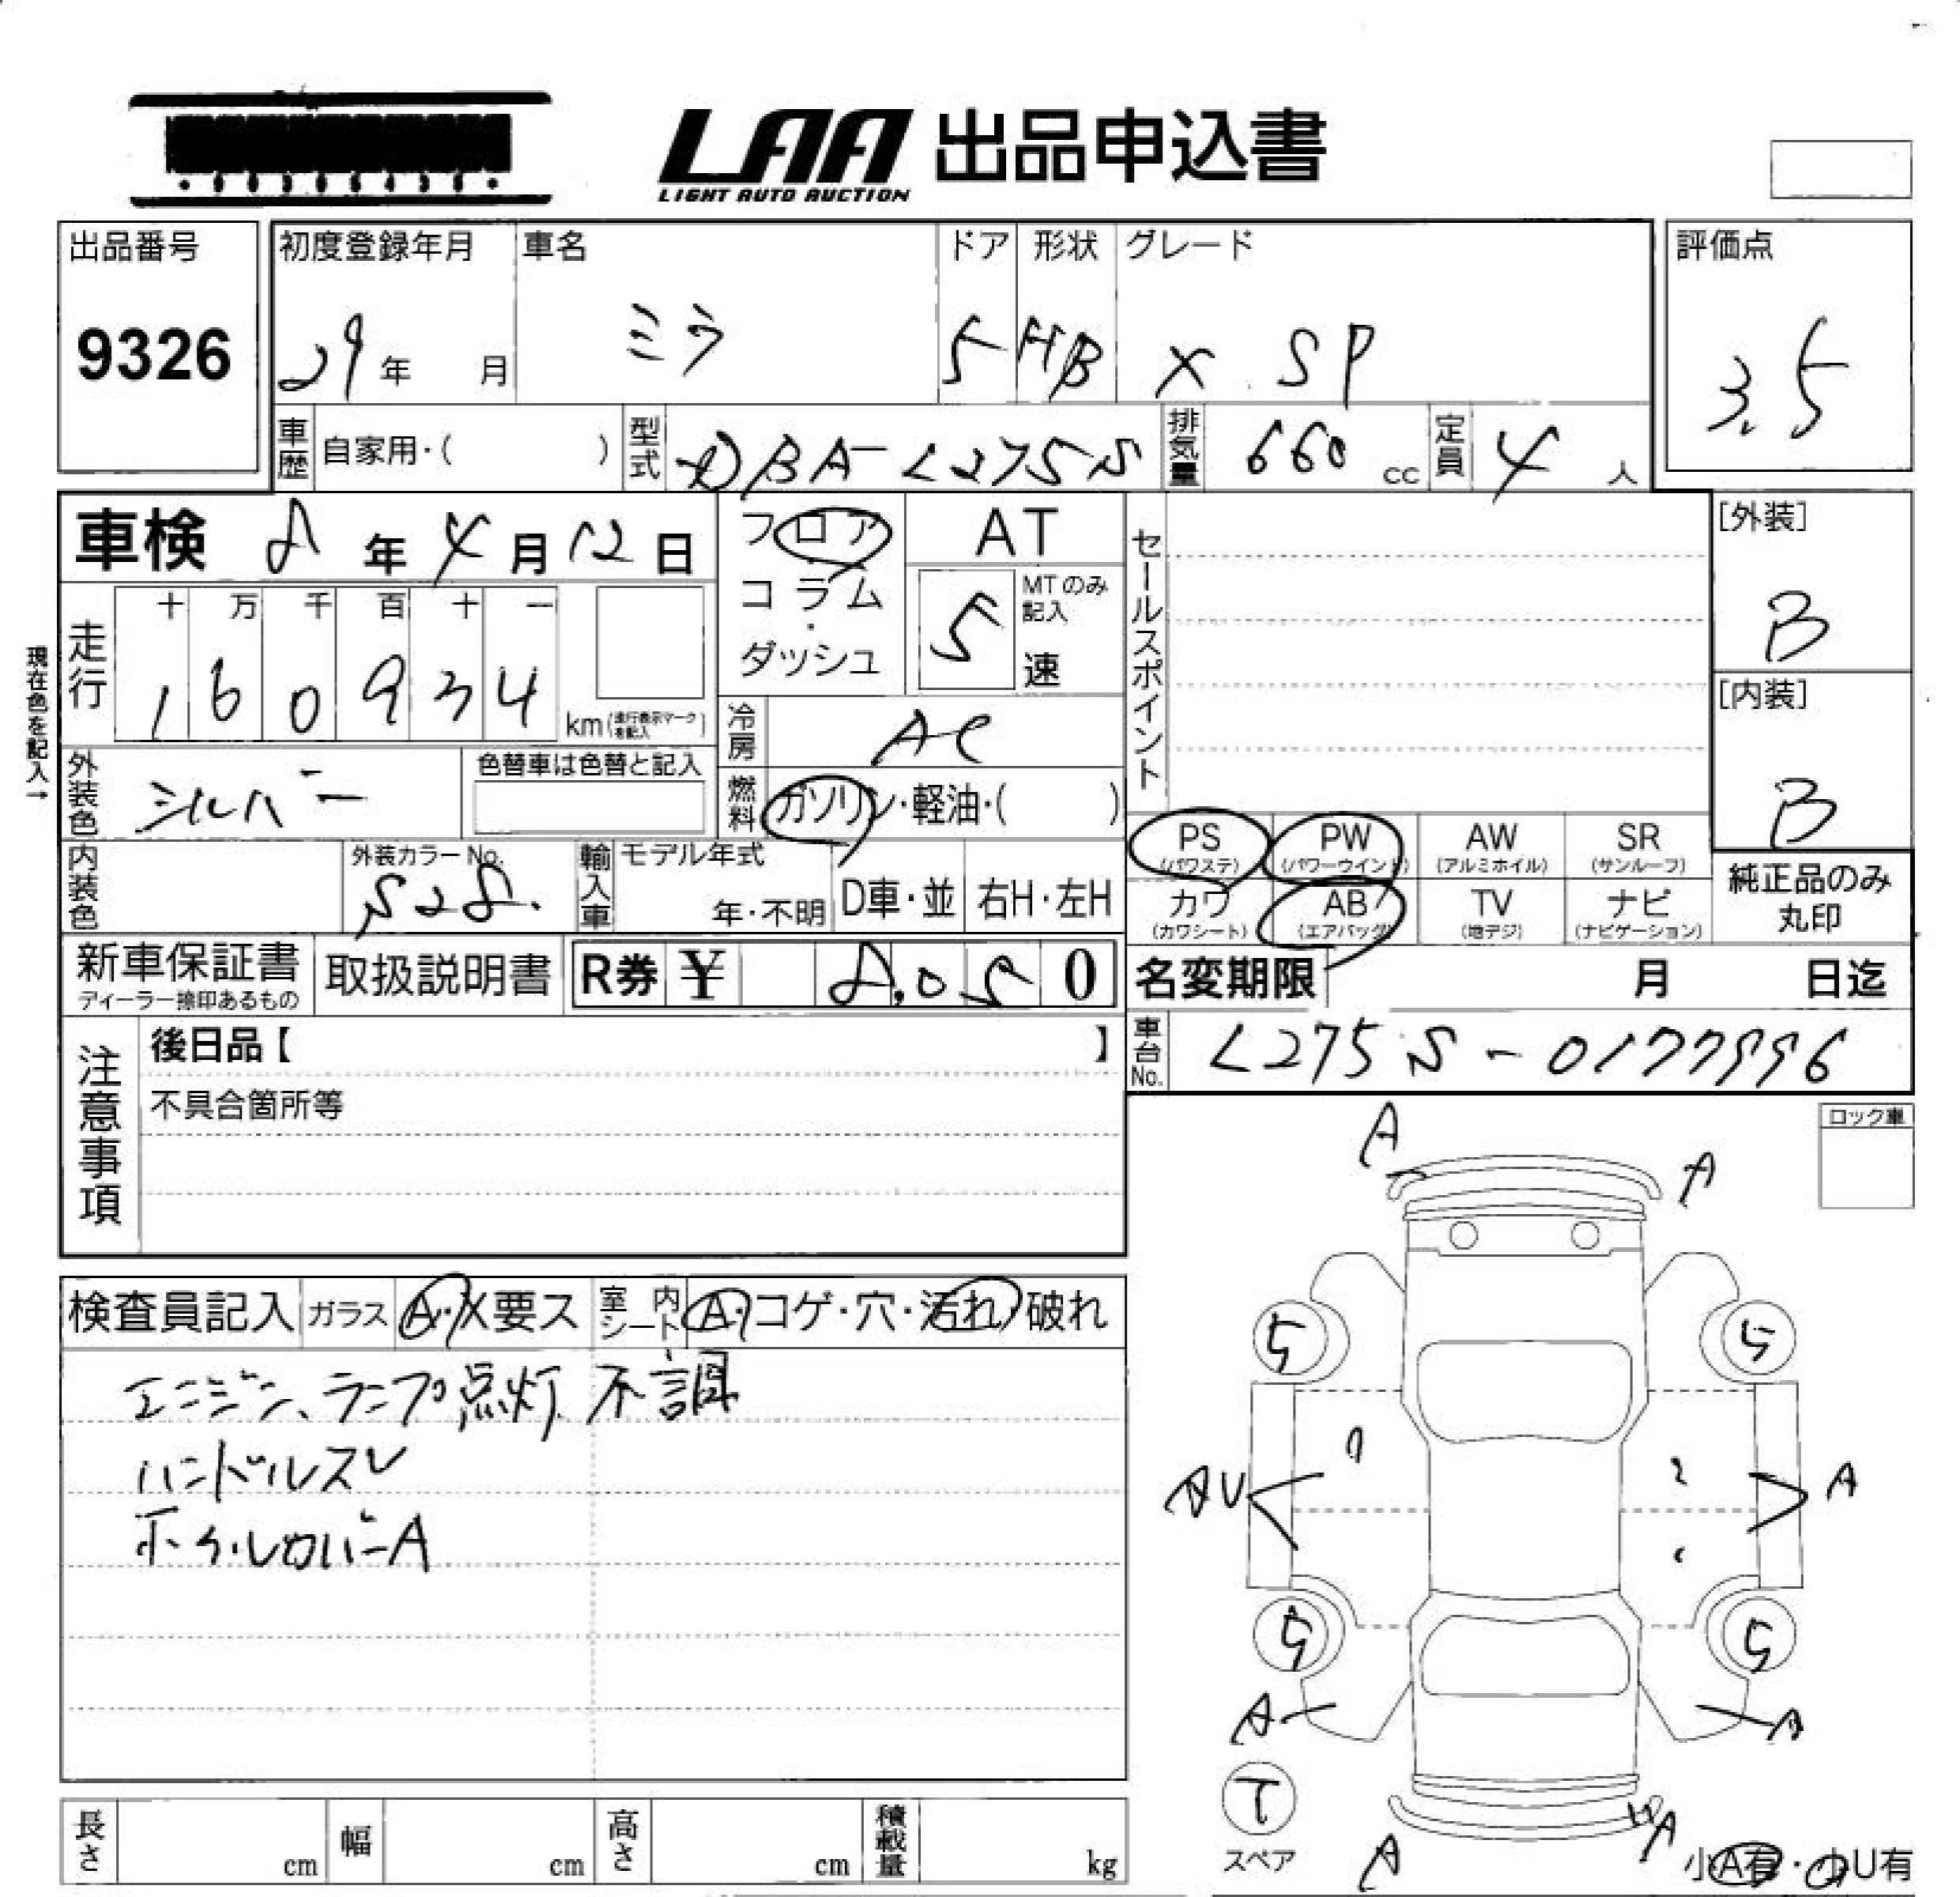 LAA 出品申込書
LIGHT AUTO AUCTION
出品番号
9326
初度登録年月
29年 月
車名
ミラ
ドア
5
形状
HB
グレード
X SP
評価点
3.5
車歴 自家用・( )
型式 DBA-L275S
排気量 660 cc
定員 4 人
車検 8年4月12日
フロア
コラム
・
ダッシュ
AT
MTのみ記入
5 速
セールスポイント
[外装]
B
[内装]
B
現在色を記入→
走行
十 万 千 百 十 一
1 6 0 9 3 4
km(走行表示マークを記入)
冷房 AC
外装色 シルバー
色替車は色替と記入
燃料 ガソリン・軽油・( )
内装色
外装カラーNo.
S28.
輸入車
モデル年式
年・不明
D車・並
右H・左H
PS (パワステ)
PW (パワーウインド)
AW (アルミホイル)
SR (サンルーフ)
カワ (カワシート)
AB (エアバッグ)
TV (地デジ)
ナビ (ナビゲーション)
純正品のみ
丸印
新車保証書
ディーラー捺印あるもの
取扱説明書
R券 ¥ 8,050
名変期限 月 日迄
車台No. L275S-0177996
注意事項
後日品【 】
不具合箇所等
ロック車
A
A
検査員記入 ガラス A・X要ス 室内シート A・コゲ・穴・汚れ・破れ
エンジン、ランプ点灯、不調
ハンドルスレ
ホイールカバーA
5 5
AU A
5 5
A A
T
スペア
A
A
小A有・小U有
長さ cm
幅 cm
高さ cm
積載量 kg